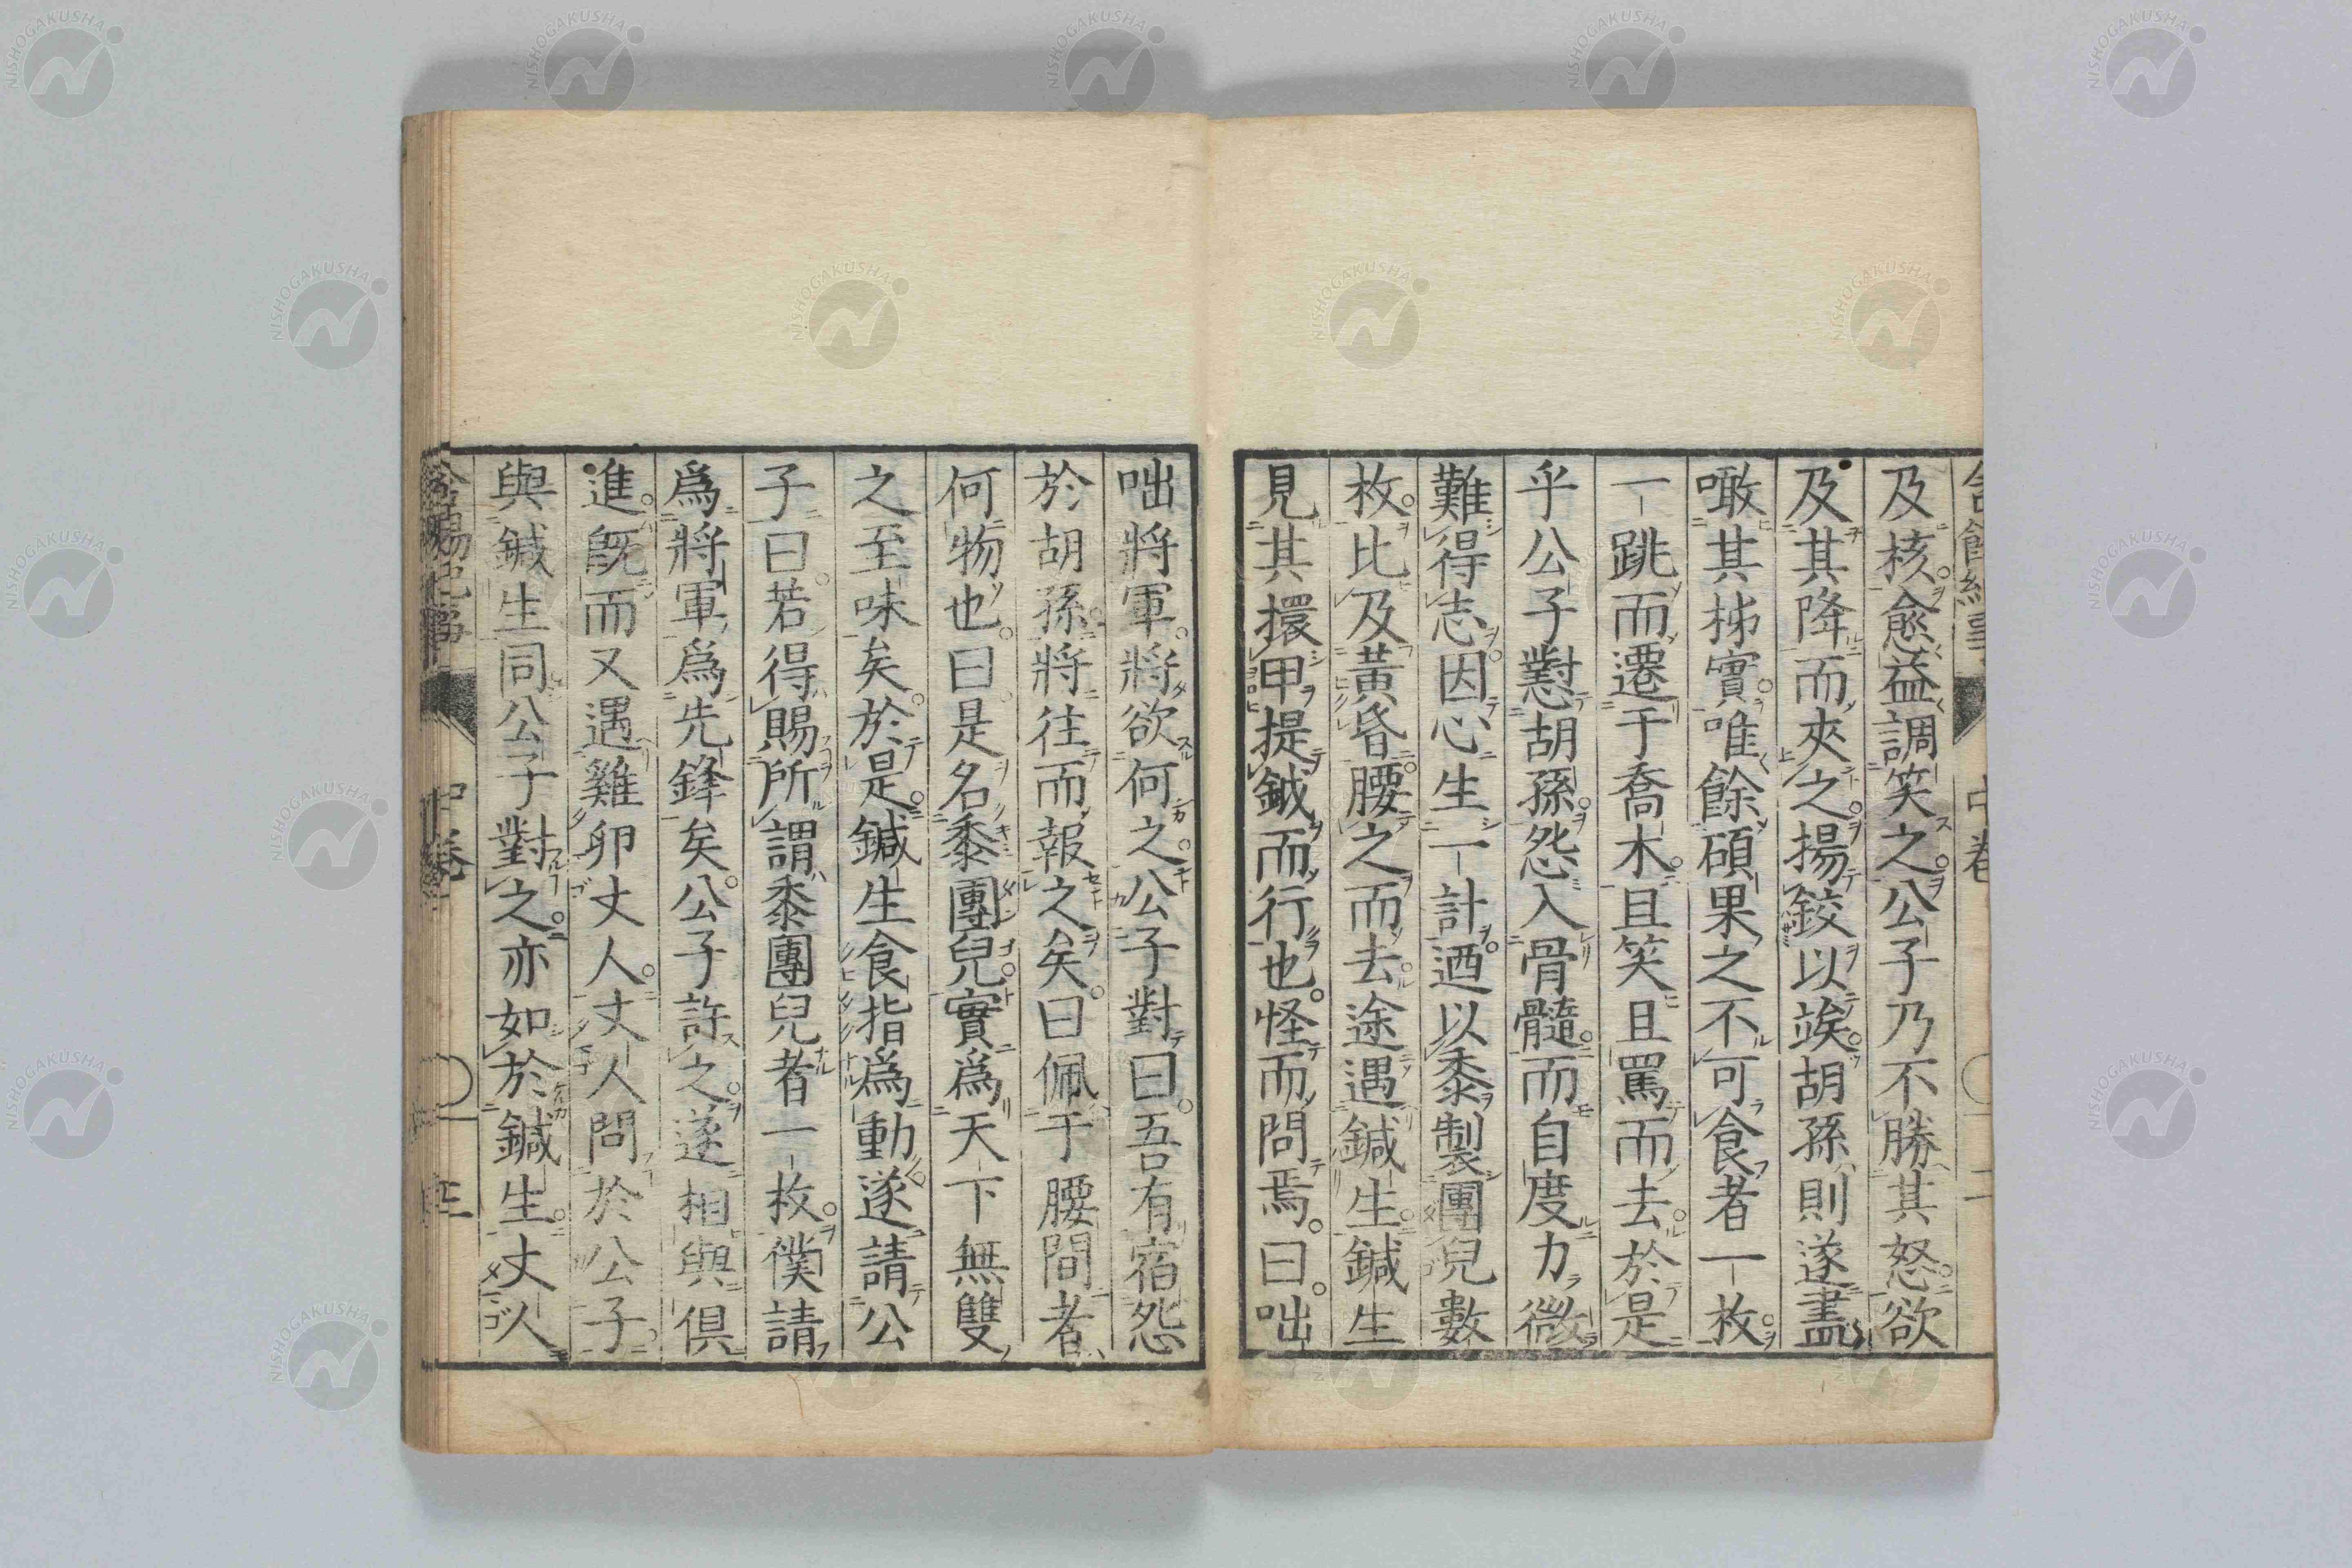 及核愈益調笑之公子乃不勝其怒欲
及其降而夾之揚鉸以竢胡孫則遂盡
噉其柹實唯餘碩果之不可食者一枚
一跳而遷于喬木且笑且罵而去於是
乎公子懟胡孫怨入骨髓而自度力微
難得志因心生一計迺以黍製團兒數
枚比及黃昏腰之而去途遇鍼生鍼生
見其擐甲提鉞而行也怪而問焉曰咄
咄將軍將欲何之公子對曰吾有宿怨
於胡孫將往而報之矣曰佩于腰間者
何物也曰是名黍團兒實爲天下無雙
之至味矣於是鍼生食指爲動遂請公
子曰若得賜所謂黍團兒者一枚僕請
爲將軍爲先鋒矣公子許之遂相與俱
進旣而又遇雞卵丈人丈人問於公子
與鍼生同公子對之亦如於鍼生丈人
中卷
NISHOGAKUSHA